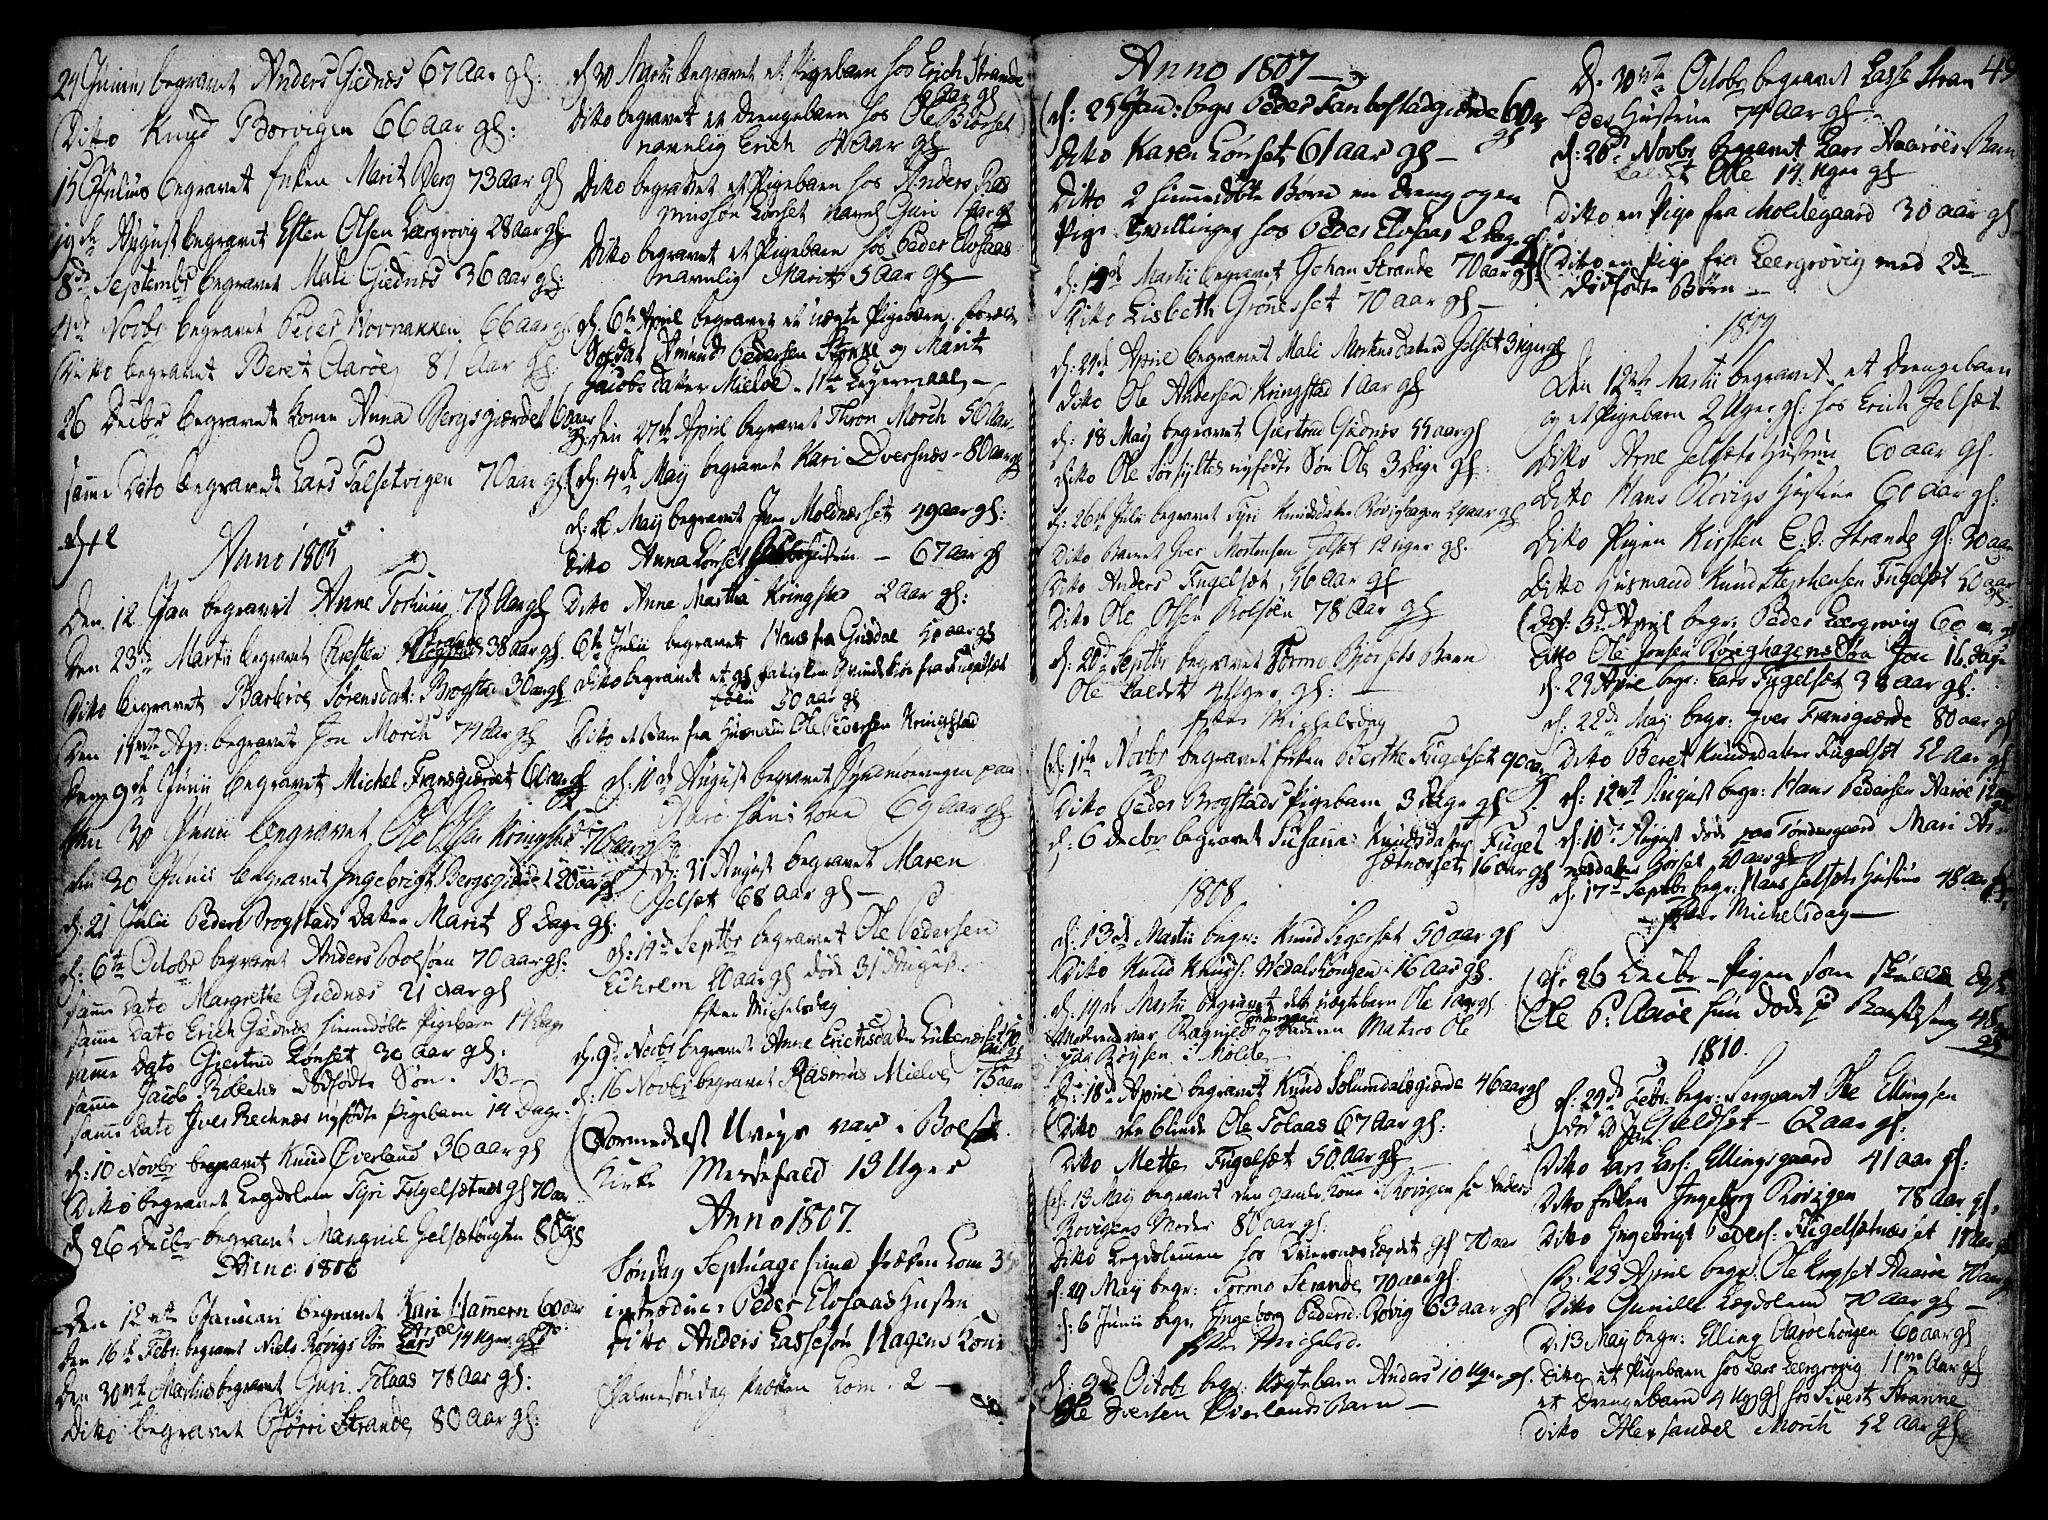 29 Junius begravet Anders Giednæs 67 Aar gl:
Ditto Knud Borvigen 66 aar gl:
15 Julius begravet Enken Marit Berg 73 aar gl
19de August begravet Esten Olsen Leergrovig 28 aar gl
8de Septembr begravet Mali Giednæs 36 aar gl:
4de Novbr begravet Peder Hovnakken 66 aar gl
Ditto begravet Beret Aarøe 81 Aar gl:
26 Decbr begravet Konen Anna Bergsgjerdet 60 aar
samme Dato begravet Lars Talsetvigen 70 aar gl
Anno 1805
Den 12 Jan begravet Anne Torhuus 78 Aar gl
Den 23de Martii begravet Christen 38 aar gl.
Ditto begravet Barbroe Sørensdat: Brogstad 30 aar gl
Den Ap: begravet Jon Morch 74 Aar gl
Den 9de Junii begravet Michel Fransgierdet 61 aar gl
Den 30 Junii begravet Ole Olsen Kringstad 76 aar gl
den 30 Junii begravet Ingebrigt Bergsgierdet 20 aar gl
d: 21 Julii Peder Brogstads datter Marit 8 Dage gl:
d: 6te Octobr begravet Anders Bolsøen 70 aar gl:
samme Dato Margrethe Giednæs 21 aar gl
samme Dato Erich Giednæs hiemedøbte Pigebarn 14 dage
samme Dato Giertrud Lønset 30 aar gl:
samme Jacob Rokens dødfødte Søn. N
samme Dato Iver Recknæs nyfødte Pigebarn 14 Dage:
d: 10 Novbr begravet Knud Øverland 36 aar gl
Ditto begravet Legdslem Syri Fugelsætnæs gl 70 aar
d 26 Decbr begravet Mangnil Gelsætbugten 80 gl
Anno 1806
Den 12te Januari begravet Kari Hammern 60 aar
Den 16de Febr: begravet Niels Røvigs Søn Lars 14 Uger gl
Den 30te Martius begravet Guri Folaas 78 Aar gl:
Ditto begravet Strande 80 aar gl:
d 30 Martii begravet et Pigebarn hos Erich Strande
Aar gl
Ditto begravet et Drengebarn hos Ole Biørset
navnlig Erich 4 Aar gl
Ditto begravet et Pigebarn hos Anders Ras
mussøn Lønset navnl Guri 1 Aar gl
Ditto begravet et Pigebarn hos Peder Elvsaas
navnlig Marit 5 Aar gl
d. 6te April begravet et uægte Pigebarn. forældre
Soldat Amund Pedersen og Marit
Jacobsdatter Mielve. 1te Leyermaal
Den 27de April begravet Thron Morch 56 Aar.
d: 4de May begravet Kari Dversnæs - 80 aar gl
d. 26 May begravet Jon Moldnæset 49 aar gl:
Ditto Anna Lønset - 67 aar gl
Ditto Anne Martha Kringstad 2 aar gl:
6te Julii begravet Hans fra Gusdal 50 aar gl
Ditto begravet et gl fattiglem fra Fugelsæt
50 aar gl
Ditto et Barn fra Husmand Ole Pedersen Kringstad
d: 10de August begravet paa
Aarø hans Kone 69 aar gl
d: 31 August begravet Maren
Jelset 68 aar gl
d: 14de Septbr begravet Ole Pedersen
Eichrem 20 aar gl døde 31 August.
Efter Michelsdag
d: 9de Novbr begravet Anne Erichsdatter
d: 16 Novbr begravet Rasmus Mielve 75 aar
Formedelst Uveyr var i Bolsøe
Kirke Messefald 13 Uger
Anno 1807.
Søndag Septuagesima Præken Lom 35
introduc: Peder Elvsaas Hustru
Ditto Anders Lassesøn Hagens Kone
Palmesøndag Præken Lom. 2
Anno 1807
d: 25 Jan: begr. Peder Tanbostadgierde 60 aar
gl
Ditto Karen Lønset 61 aar gl
Ditto 2 hiemedøbte Børn en Dreng og en
Pige Tvillinger hos Peder Elvsaas 2 dage gl
d: 19de Martii begravet Johan Strande 70 aar gl
Ditto Lisbeth Grønesset 70 aar gl
d: 29de April begravet Mali Mortensdatter Jelset 3 uger gl
Ditto Ole Andersen Kringstad 1 aar gl
d: 18 May begravet Giertrud Giednæs 55 aar gl
Ditto Ole Sørsyltes nyfødte Søn Ole 3 Uge gl:
d: 26de Julii begravet Syri Knudsdatter Røvighagen 29 aar gl
Ditto Barnet Iver Mortensen Jelset 12 uger gl.
Ditto Anders Fugelsæt 56 aar gl
Ditto Ole Olsen Bolsøen 78 aar gl
d: 20de Septbr begravet Tormo Biørsets Barn
Ole kaldet 4 Uger gl:
Efter Michelsdag
d. 1te Novbr begravet Enken Berthe Fugelset 90 aar
Ditto Peder Brogstads Pigebarn 3 Uge gl
d: 6 Decbr begravet Susanna Knudsdatter Fugel
sætnæsset 16 aar gl
1808
d: 13de Martii begr: Knud Sigerset 50 aar gl
Ditto Knud Knuds: Wedalshougen 16 Aar gl.
d. 19de Martii begravet det uægtebarn Ole 1 aar gl.
Moderen var Ragnild og Faderen Matros Ole
paa Røysen i Molde
d: 18de April begravet Knud Solumdalsgierde 46 aar gl
Ditto den blinde Ole Folaas 67 Aar gl:
Ditto Mette Fugelsæt 50 aar gl
d: 13 May begravet den gamle Kone i Rovigen Anders
Rovigens Moder 80 aar gl.
Ditto Legdslemmen hos Dversnæs Legdet gl 70 aar
d: 29 May begr: Tormo Strande 70 aar gl.
d: 6 Junii begr. Ingeborg Pedersd: Røvig 63 aar gl
Efter Michelsd.
d: 9de Octobr begr. Uægtebarn Anders 10 Uger gl.
Ole Iversen Øverlands Barn
49
D. 30te Octobr begravet Lasse Stran
des Hustrue 74 aar gl.
d: 20de Novbr begravet Lars Aarøes Barn
kaldet Ole 14 Uger gl
Ditto en Pige fra Moldegaard 30 aar gl
Ditto en Pige fra Leergrovig med 2de
Dødfødte Børn
1809
Den 12te Martii begravet et Drengebarn
og et Pigebarn 2 Uger gl: hos Erich Jelset
Ditto Arne Jelsets Hustrue 60 aar gl.
Ditto Hans Røvigs Hustrue 60 aar gl:
Ditto Pigen Kirsten E: D: Strande gl: 30 aar
Ditto Husmand Knud Stephensen Fugelset 50 aar
gl:
Do: 3de April begr: Peder Leergrovig 60 aar gl
Ditto Ole Jonsen Røvighagens Søn Jon 16 dage
d. 23 April begr: Lars Fugelsæt 38 aar gl:
d. 22de May begr: Iver Fransgierde 80 aar gl
Ditto Beret Knudsdatter Fugelset 52 aar gl
d: 12te August begr: Hans Pedersen Aarøe
d: 10de August døde paa Tøndergaard Mari Ar
nesdatter Horset 50 aar gl
d: 17de Septbr begr: Hans Jelsets Hustrue 48 aar
Efter Michelsdag
d: 26 Decbr. Pigen som skulle
Ole P: Aarøe hun døde
1810.
d: 29de Febr: begr: Sergeant Ole Ellingsen
Gueldset - 62 aar gl:
Ditto Lars Lars: Ellingsgaard 41 aar gl:
Ditto Enken Ingeborg Røvigen 78 Aar gl.
Ditto Ingebrigt Peders: Fugelsætnæset 17 Aar gl
d: 23 April begr: Ole Aarøe 70 aar gl
Ditto Gunille Legdslem 70 aar gl
D: 13 May begr: Elling Aarøehougen 60 aar gl
Ditto et Pigebarn hos Lars Leergrovig Aar gl
et Drengebarn 4 Uger gl hos Sivert Stranne
Ditto Morch 52 aar gl